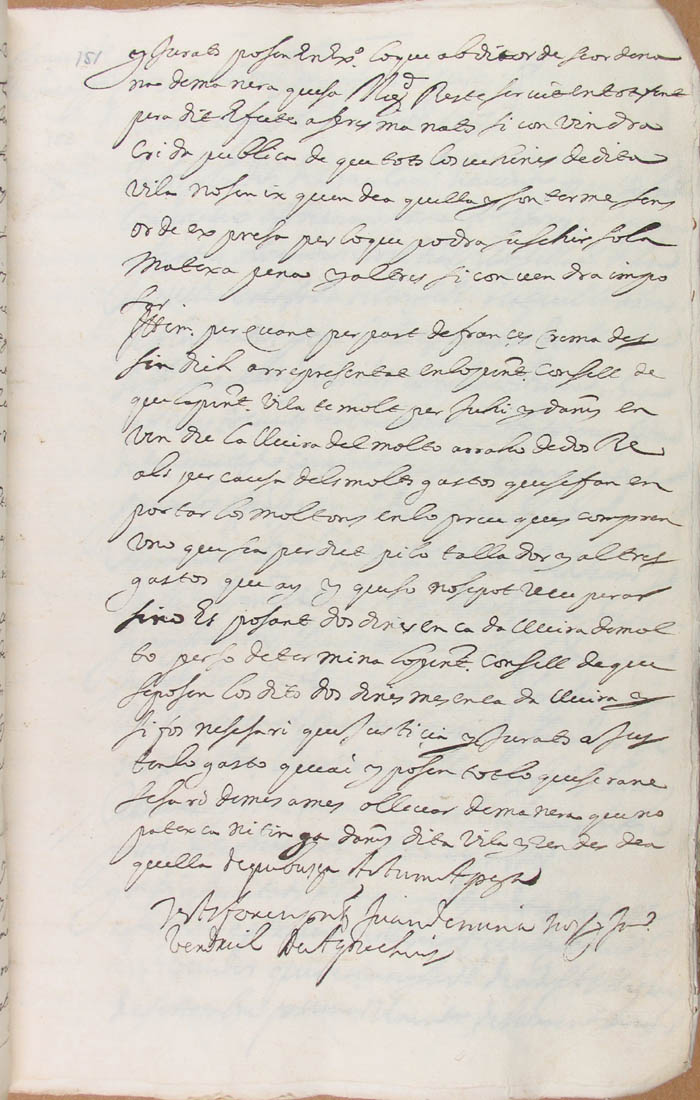 151
y Jurats posen En Exo. lo que ab dit orde se ordena
na de manera que sa Magd Reste servit en tot fent
pera dit Efecte afers ma nats si convindra
Crida publica de que tots los vehins de dita
Vila no se nixquen de a quella y son terme sens
orde expresa per lo que podra suschir sola
Matexa pena y altres si convendra impo
sar
Ittem. per quant per part de frances Crema des
sindich a rrepresentat en lo pnt. Consell de
que la pnt. Vila te molt per juhi y dany en
vendre la lliura del molto a rraho de dos Re
als per causa dels molts gastos que se fan en
portar los moltons en lo preu ques compren
Uno que sen perdut pilo tallador y altres
gastos que ay y que so no se pot recuperar
sino Es posant dos dines en ca da lliura de mol
to per so determina lo pnt. Consell de que
se posen los dits dos dines mes en ca da lliura y
si fos nesesari que Justicia y Jurats a Jus
ten lo gasto que ai y posen tot lo que sera ne
sesari de mes a mes o llevar de manera que no
patexca ni tinga dany dita Vila y rendes de a
quella de quibus
Tests foren pnts Juan
Verdeull